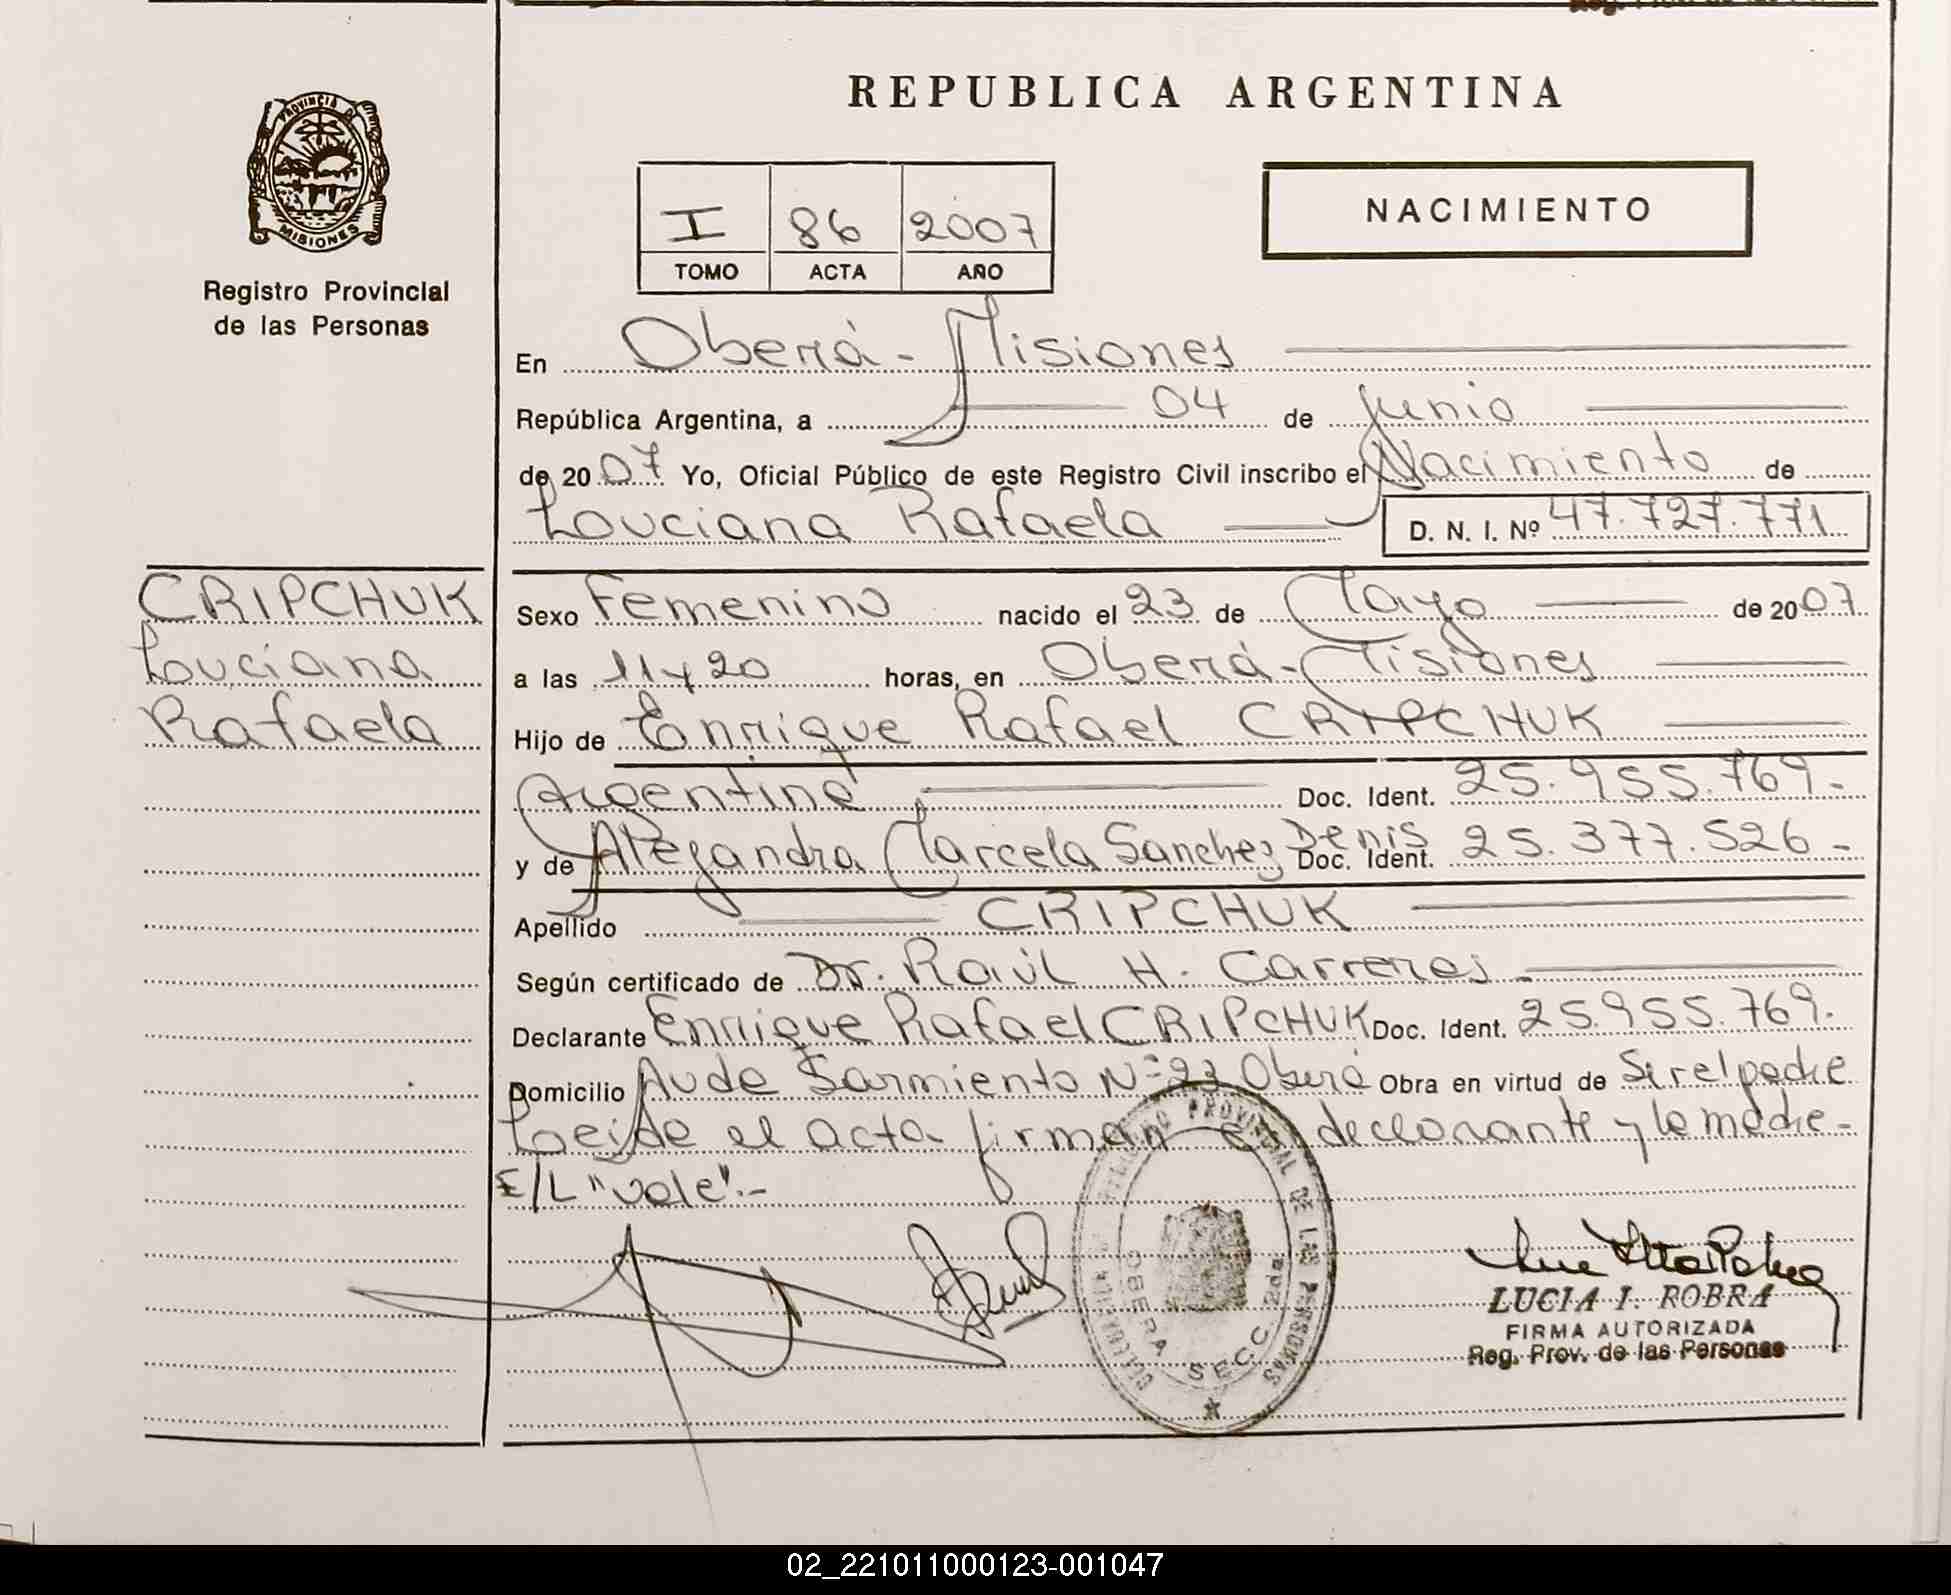 REPUBLICA ARGENTINA
PROVINCIA DE
MISIONES
Registro Provincial
de las Personas
I 86 2007
TOMO ACTA AÑO
NACIMIENTO
En Oberá - Misiones
República Argentina, a 04 de Junio
de 2007 Yo, Oficial Público de este Registro Civil inscribo el Nacimiento de
Louciana Rafaela D. N. I. Nº 47.727.771
CRIPCHUK
Louciana
Rafaela
Sexo Femenino nacido el 23 de Mayo de 2007
a las 11 y 20 horas, en Oberá - Misiones
Hijo de Enrique Rafael CRIPCHUK
Argentina Doc. Ident. 25.955.769.-
y de Alejandra Marcela Sanchez Denis Doc. Ident. 25.377.526 -
Apellido CRIPCHUK
Según certificado de Dr. Raúl H. Carreres
Declarante Enrique Rafael CRIPCHUK Doc. Ident. 25.955.769.
Domicilio Avda Sarmiento Nº 23 Oberá Obra en virtud de Ser el padre
Leída el acta firman el declarante y la madre -
E/L "vale".-
REGISTRO PROVINCIAL DE LAS PERSONAS
OBERA SECC. 2da
LUCIA I. ROBRA
FIRMA AUTORIZADA
Reg. Prov. de las Personas
02_221011000123-001047